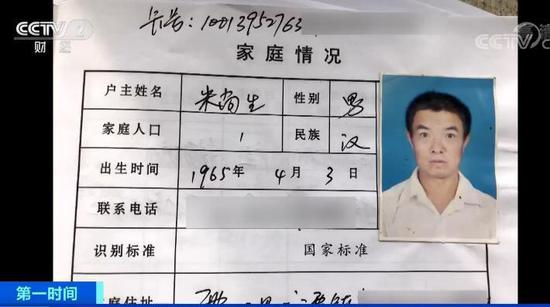 CCTV 2
财经
CCTV
号:10013952763
家庭情况
户主姓名 米尚生 性别 男
家庭人口 1 民族 汉
出生时间 1965年 4月 3日
联系电话
识别标准 国家标准
庭住址
第一时间